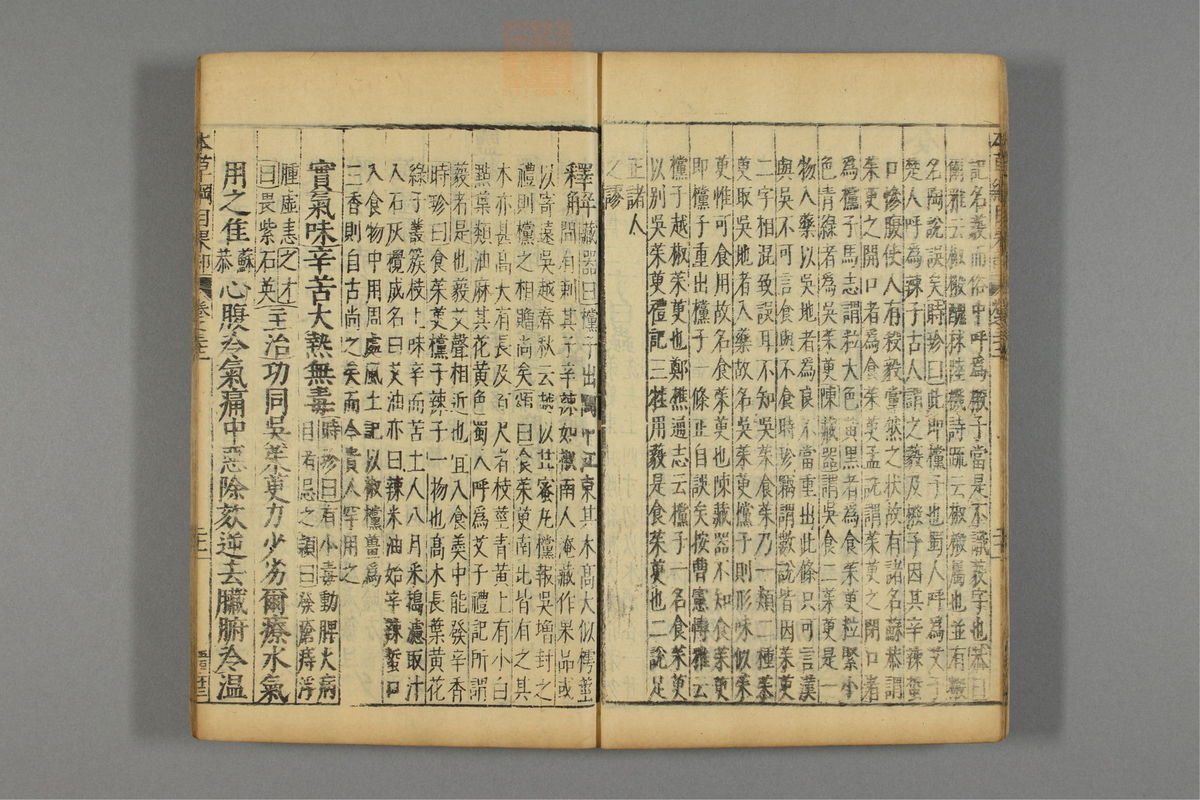 記名藙而俗中呼為𣝍子當是不識藙字也恭曰
爾雅云椒榝醜莍陸璣詩疏云椒榝屬也並有榝
名陶說誤矣時珍曰此即欓子也蜀人呼為艾子
楚人呼為辣子古人謂之藙及榝子因其辛辣蜇
口慘腹使人有殺毅黨然之狀故有諸名蘇恭謂
茱萸之開口者為食茱萸孟詵謂茱萸之閉口者
為欓子馬志謂粒大色黃黑者為食茱萸粒緊小
色青綠者為吳茱萸陳藏器謂吳食二茱萸是一
物入藥以吳地者為良不當重出此條只可言漢
與吳不可言食與不食時珍竊謂數說皆因茱萸
二字相混致誤耳不知吳茱食茱乃一類二種茱
萸取吳地者入藥故名吳茱萸欓子則形味似茱
萸惟可食用故名食茱萸也陳藏器不知食茱萸
即欓子重出欓子一條正自誤矣按曹憲博雅云
欓子越椒茱萸也鄭樵通志云欓子一名食茱萸
以別吳茱萸禮記三牲用藙是食茱萸也二說足
正諸人
之謬
釋解藏器曰欓子出閩中江東其木高大似樗莖
間有刺其子辛辣如椒南人淹藏作果品或
以寄遠吳越春秋云越以甘蜜丸欓報吳增封之
禮則欓之相贈尚矣頌曰食茱萸南北皆有之其
木亦甚高大有長及百尺者枝莖青黃上有小白
點葉類油麻其花黃色蜀人呼為艾子禮記所謂
藙者是也藙艾聲相近也宜入食羹中能發辛香
時珍曰食茱萸欓子辣子一物也高木長葉黃花
綠子叢簇枝上味辛而苦土人八月采搗濾取汁
入石灰攪成名曰艾油亦曰辣米油始辛辣蜇口
入食物中用周處風土記以椒欓薑為
三香則自古尚之矣而今貴人罕用之
實氣味辛苦大熱無毒時珍曰有小毒動脾火病
目者忌之穎曰發瘡痔浮
腫虛恚之才
曰畏紫石英主治功同吳茱萸力少劣爾療水氣
用之佳蘇恭心腹冷氣痛中惡除欬逆去臟腑冷溫
本草綱目果部
卷之三十二